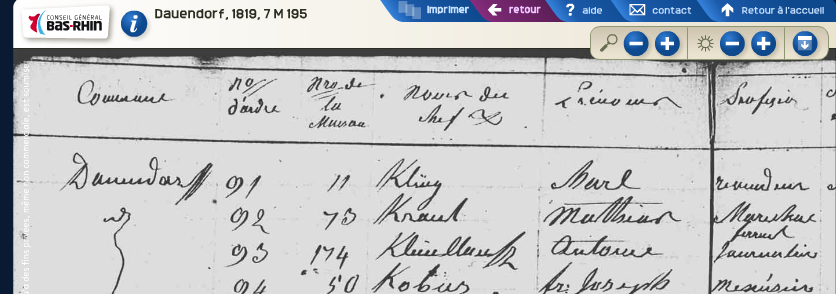 CONSEIL GÉNÉRAL
BAS-RHIN
Dauendorf, 1819, 7 M 195
imprimer
retour
aide
contact
Retour à l'accueil
Commune no/ d'ordre Nro de la Maison Noms du chef Prénoms
Dauendorf 91 11 Kling Marl revendeur
92 73 Kraut Mathias Marechal ferrant
93 174 Antoine Journalier
94 50 Kobus fr: Joseph menuisier